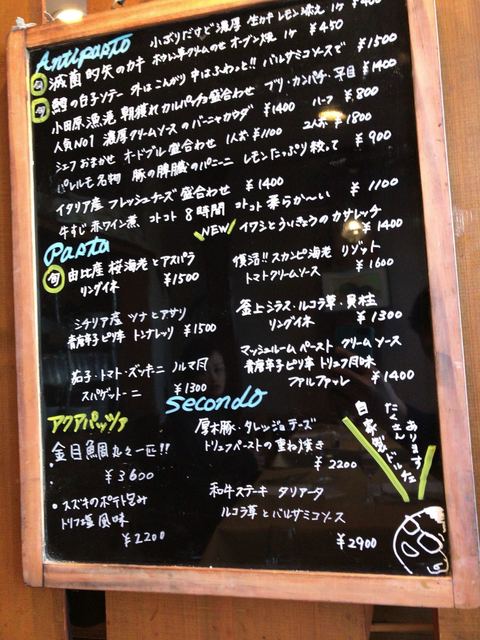 Antipasto
小ぶりだけど濃厚 生カキ レモン添え 1ケ ¥400
旬 滅菌 的矢のカキ ホウレン草クリームのせ オーブン焼 1ケ ¥450
旬 鱈の白子ソテー 外はこんがり 中はふわっと!! バルサミコソースで ¥1500
小田原漁港 朝獲れカルパッチョ盛合わせ ブリ・カンパチ・平目 ¥1400
人気No1 濃厚クリームソースのバーニャカウダ ¥1400 ハーフ ¥800
シェフおまかせ オードブル盛合わせ 1人前 ¥1100 2人前 ¥1800
パレルモ名物 豚の脾臓のパニーニ レモンたっぷり絞って ¥900
イタリア産 フレッシュチーズ盛合わせ ¥1400
牛すじ赤ワイン煮、コトコト8時間 コトコト 柔らか〜い ¥1100
NEW! イワシとういきょうのカサレッチ ¥1400
Pasta
旬 由比産 桜海老とアスパラ
リングイネ ¥1500
シチリア産 ツナとアサリ
青唐辛子ピリ辛 トンナレッリ ¥1500
茄子・トマト・ズッキーニ ノルマ風
スパゲットーニ ¥1300
復活!! スカンピ海老 リゾット
トマトクリームソース ¥1600
釜上シラス・ルコラ草・貝柱
リングイネ ¥1300
マッシュルームペースト クリームソース
青唐辛子ピリ辛 トリュフ風味
ファルファッレ ¥1400
アクアパッツァ
金目鯛 丸々一匹!!
¥3600
・スズキのポテト包み
トリフ塩風味
¥2200
Secondo
厚木豚・タレッジョチーズ
トリュフペーストの重ね焼き
¥2200
和牛ステーキ タリアータ
ルコラ草とバルサミコソース
¥2900
自家製
たくさん
あります